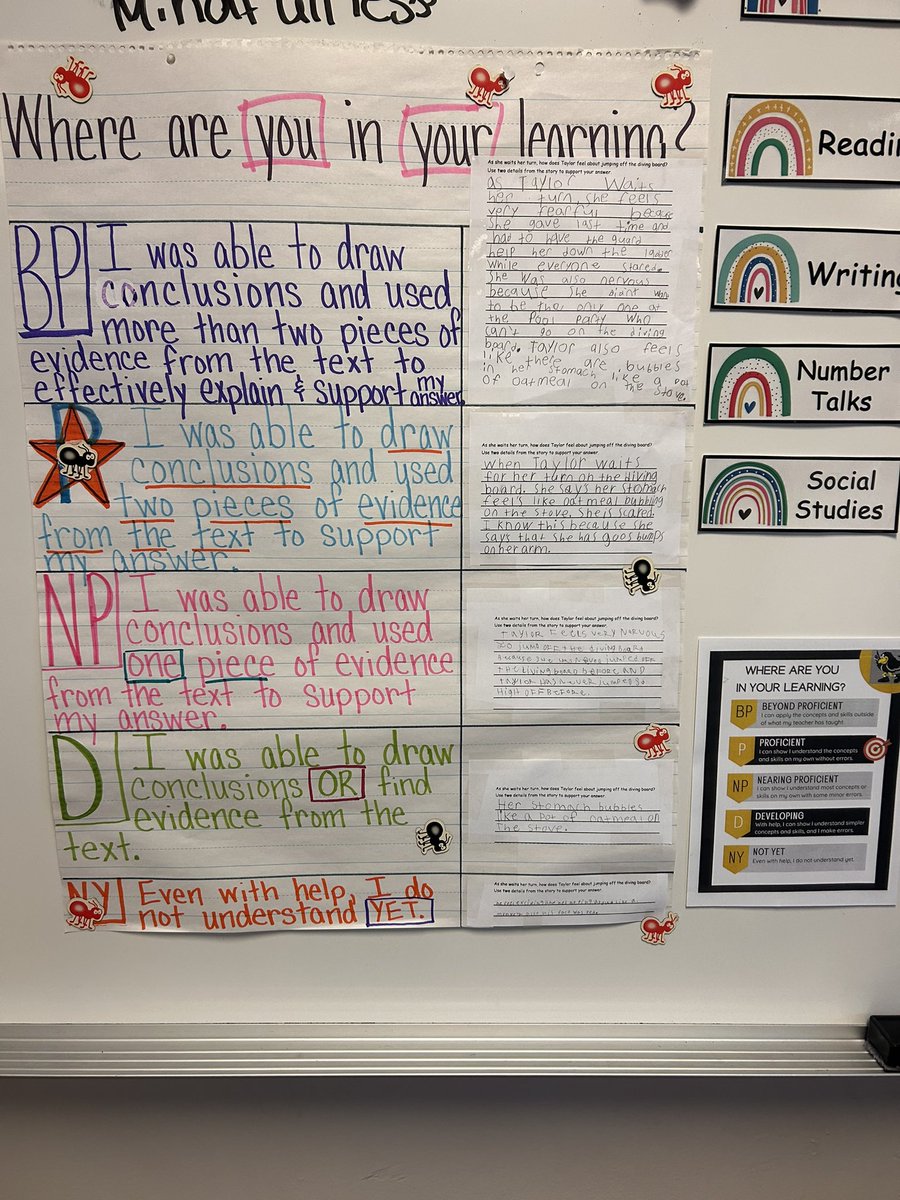 Mindfulness
Where are you in your learning?
BP I was able to draw
conclusions and used
more than two pieces of
evidence from the text to
effectively explain & support my answer.
As she waits her turn, how does Taylor feel about jumping off the diving board?
Use two details from the story to support your answer.
as Taylor waits
her turn, she feels
very fearful because
she gave last time and
had to have the guard
help her down the ladder
while everyone stared.
She was also nervous
because she didn't want
to be the only one at
the Pool Party who
can't go on the diving
board. Taylor also feels
like there are bubbles
in her stomach like a pot
of oatmeal on the stove.
P I was able to draw
conclusions and used
two pieces of evidence
from the text to support
my answer.
As she waits her turn, how does Taylor feel about jumping off the diving board?
Use two details from the story to support your answer.
When Taylor waits
for her turn on the diving
board. She says her stomach
feels like oatmeal bubbling
on the stove. She is scared.
I know this because she
says that she has goosbumps
on her arm.
NP I was able to draw
conclusions and used
one piece of evidence
from the text to support
my answer.
As she waits her turn, how does Taylor feel about jumping off the diving board?
Use two details from the story to support your answer.
TAYLOR FEELS VERY NERVOUS
TO JUMP OFF the diving board
Because she has never jumped off
THE diving board before AND
TAYLOR HAS NEVER JUMPED SO
HIGH OFF BEFORE.
D I was able to draw
conclusions OR find
evidence from the
text.
As she waits her turn, how does Taylor feel about jumping off the diving board?
Use two details from the story to support your answer.
Her Stomach bubbles
like a Pot of oatmeal on
The stove.
NY Even with help, I do
not understand YET.
As she waits her turn, how does Taylor feel about jumping off the diving board?
Use two details from the story to support your answer.
Writing
Number
Talks
Social
Studies
WHERE ARE YOU
IN YOUR LEARNING?
BP BEYOND PROFICIENT
I can apply the concepts and skills outside
of what my teacher has taught.
P PROFICIENT
I can show I understand the concepts
and skills on my own without errors.
NP NEARING PROFICIENT
I can show I understand most concepts or
skills on my own with some minor errors.
D DEVELOPING
With help, I can show I understand simpler
concepts and skills, and I make errors.
NY NOT YET
Even with help, I do not understand yet.